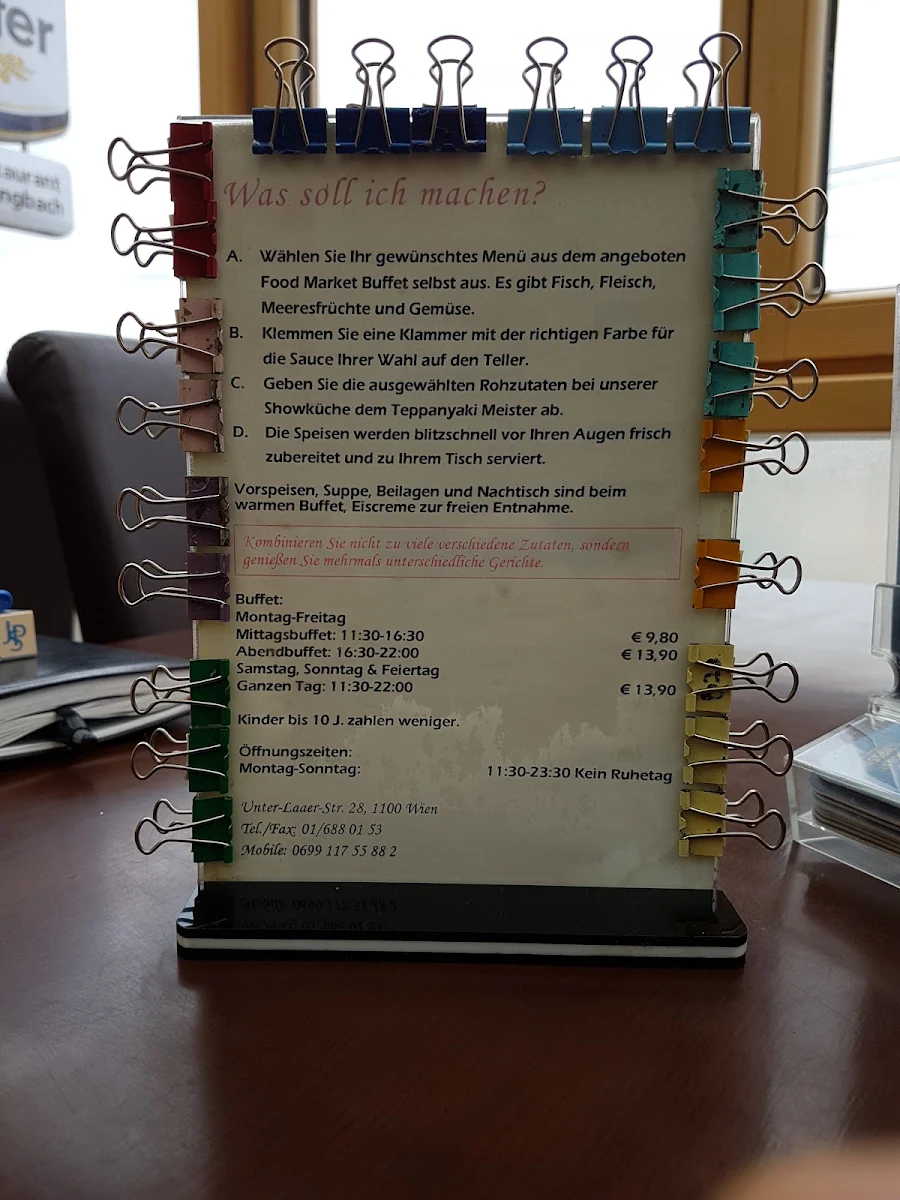 Was soll ich machen?
A. Wählen Sie Ihr gewünschtes Menü aus dem angeboten
Food Market Buffet selbst aus. Es gibt Fisch, Fleisch,
Meeresfrüchte und Gemüse.
B. Klemmen Sie eine Klammer mit der richtigen Farbe für
die Sauce Ihrer Wahl auf den Teller.
C. Geben Sie die ausgewählten Rohzutaten bei unserer
Showküche dem Teppanyaki Meister ab.
D. Die Speisen werden blitzschnell vor Ihren Augen frisch
zubereitet und zu Ihrem Tisch serviert.
Vorspeisen, Suppe, Beilagen und Nachtisch sind beim
warmen Buffet, Eiscreme zur freien Entnahme.
Kombinieren Sie nicht zu viele verschiedene Zutaten, sondern
genießen Sie mehrmals unterschiedliche Gerichte.
Buffet:
Montag-Freitag
Mittagsbuffet: 11:30-16:30 € 9,80
Abendbuffet: 16:30-22:00 € 13,90
Samstag, Sonntag & Feiertag
Ganzen Tag: 11:30-22:00 € 13,90
Kinder bis 10 J. zahlen weniger.
Öffnungszeiten:
Montag-Sonntag: 11:30-23:30 Kein Ruhetag
Unter-Laaer-Str. 28, 1100 Wien
Tel./Fax: 01/688 01 53
Mobile: 0699 117 55 88 2